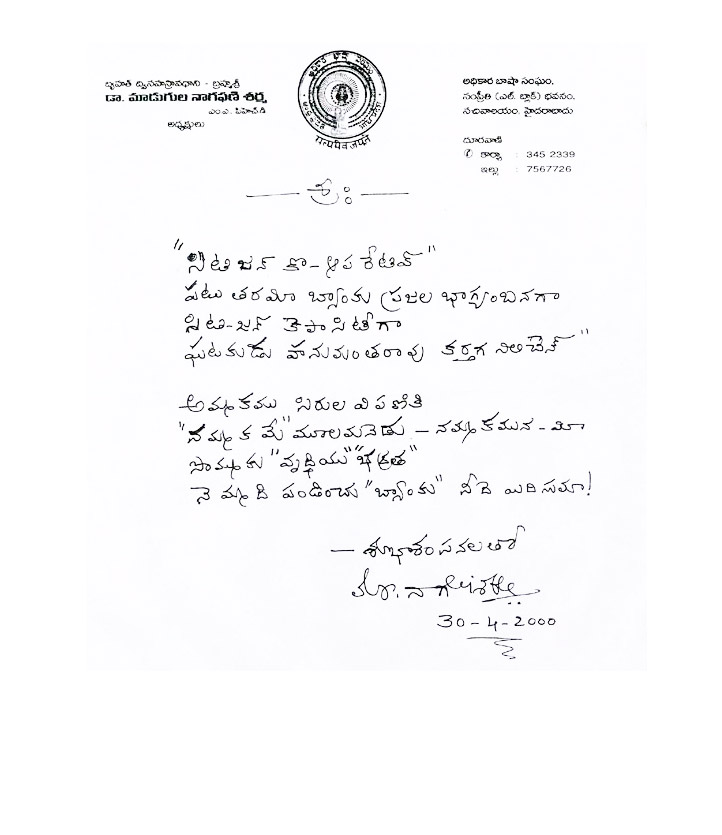 బృహత్ ద్విసహస్రావధాని - బ్రహ్మశ్రీ
డా. మాడుగుల నాగఫణి శర్మ
ఎం.ఎ. పిహెచ్.డి
అధ్యక్షులు
సత్యమేవ జయతే
అధికార భాషా సంఘం,
సంప్రీతి (ఎల్. బ్లాక్) భవనం,
సచివాలయం, హైదరాబాదు
దూరవాణి
✆ కార్యా : 345 2339
ఇల్లు : 7567726
శ్రీః
"సిటిజన్ కా-ఆపరేటివ్"
పటు తరమౌ బ్యాంకు ప్రజల భాగ్యంబనగా
సిటి-జన్ డెపాసిట్‌గా
ఘటకుడు హనుమంతరావు కర్తగ నిలిచెన్"
అమ్మకము సిరుల విపణికి
"నమ్మకమే" మూలమనెడు - నమ్మకమున - మా
సొమ్మకు "వృద్ధియు" "భద్రత"
నెమ్మది పండించు "బ్యాంకు" నీదె యిది సుమా!
- శుభాశంసనలతో
మా. నాగఫణిశర్మ
30-4-2000